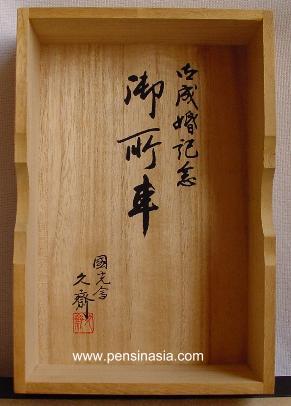 御成婚記念
御所車
國光會
久齋
www.pensinasia.com